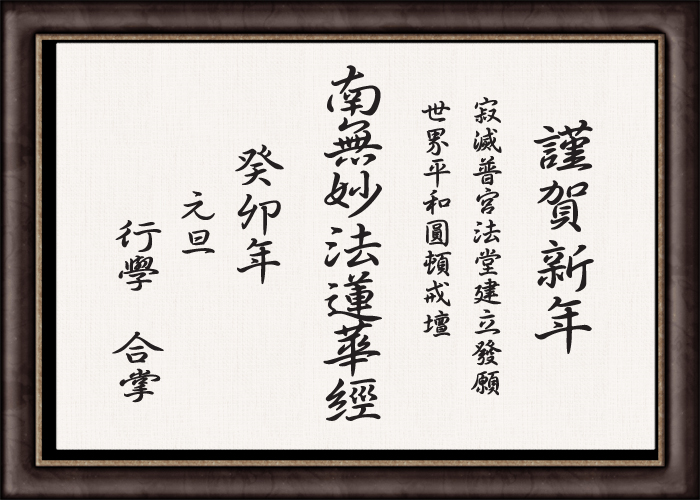 謹賀新年
寂滅普宮法堂建立發願
世界平和圓頓戒壇
南無妙法蓮華經
癸卯年
元旦
行學 合掌